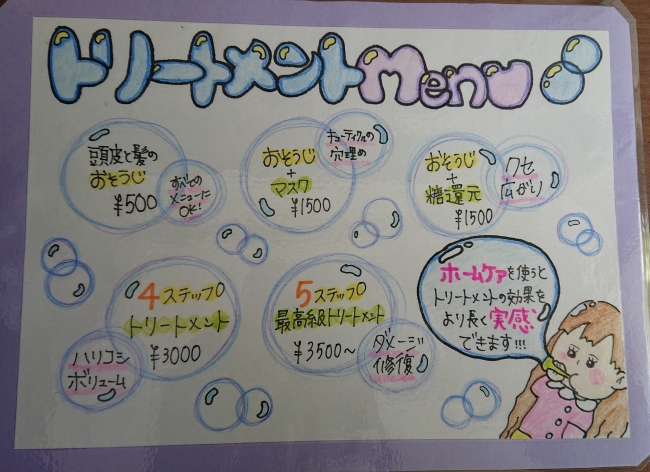 トリートメントMenu
頭皮と髪の
おそうじ
¥500
すべての
メニューに
OK!
おそうじ
+
マスク
¥1500
キューティクルの
穴埋め
おそうじ
+
糖還元
¥1500
クセ
広がり
4ステップ
トリートメント
¥3000
ハリコシ
ボリューム
5ステップ
最高級トリートメント
¥3500~
ダメージ
修復
ホームケアを使うと
トリートメントの効果を
より長く実感
できます!!!